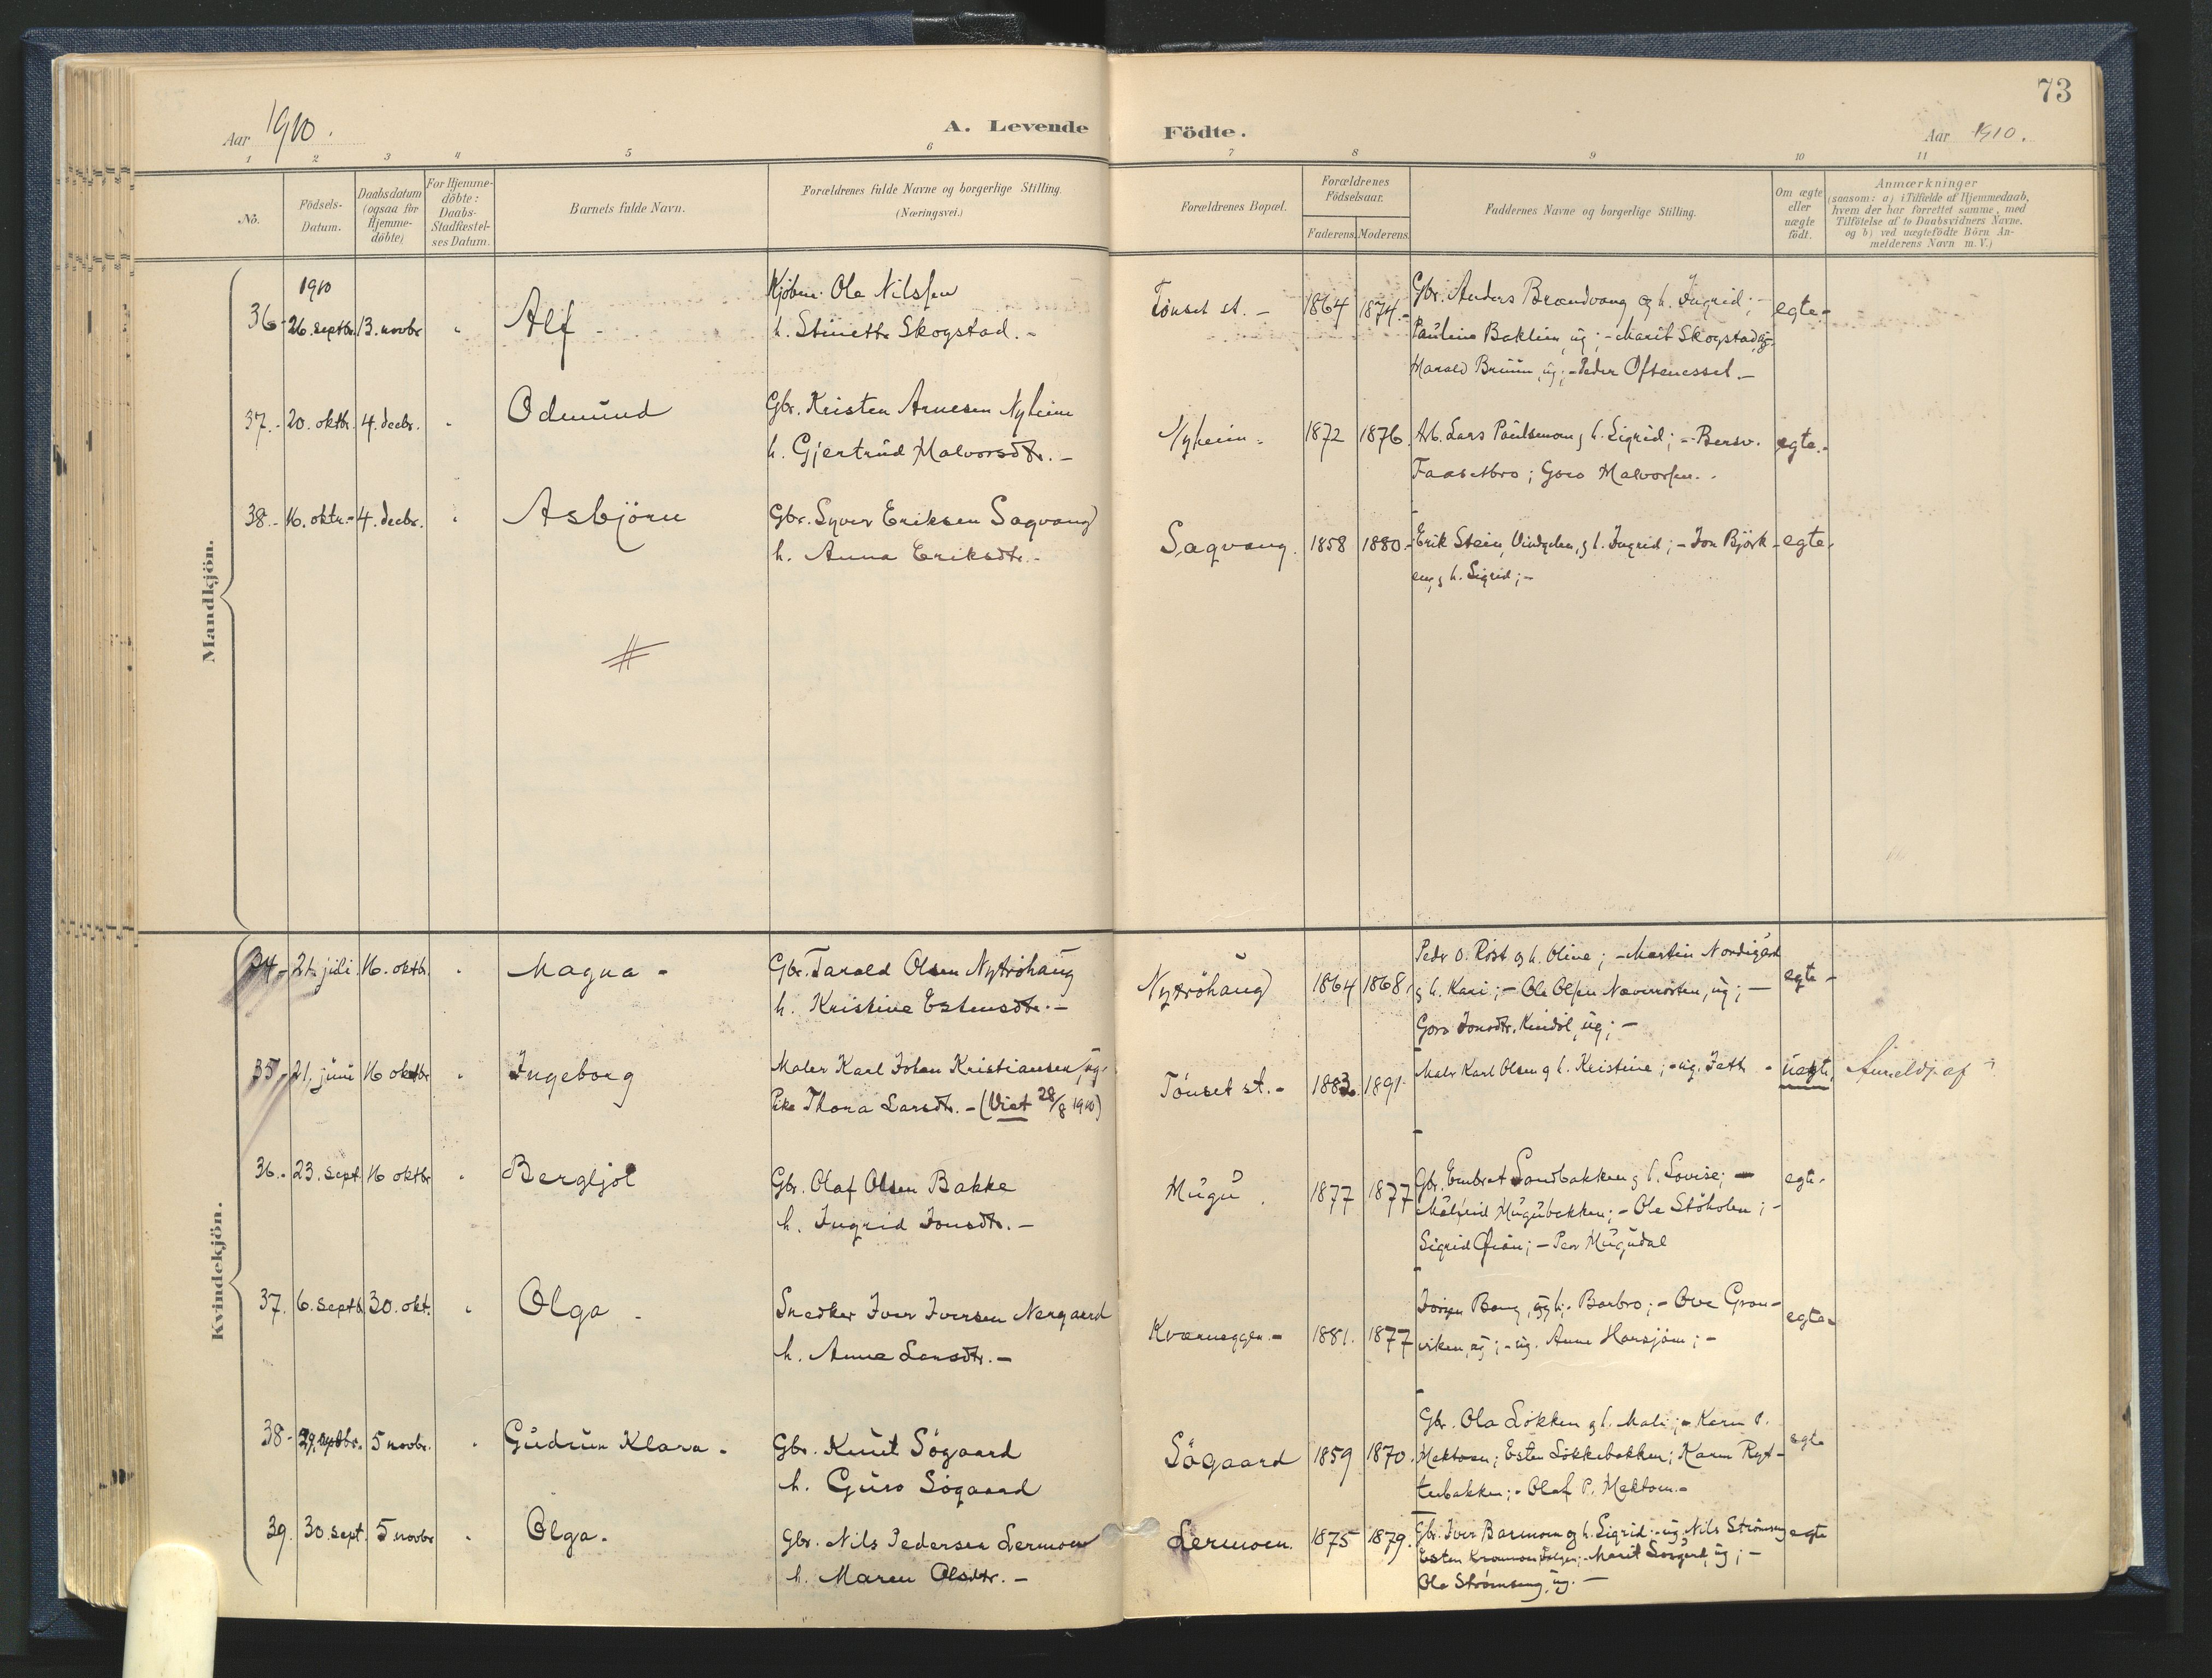 73
Aar 1910.
A. Levende Födte.
Aar 1910.
1 2 3 4 5 6 7 8 9 10 11
No.
Födsels-
Datum.
Daabsdatum
(ogsaa for
Hjemme-
döbte)
For Hjemme-
döbte:
Daabs-
Stadfæstel-
ses Datum.
Barnets fulde Navn.
Forældrenes fulde Navne og borgerlige Stilling.
(Næringsvei.)
Forældrenes Bopæl.
Forældrenes
Födselsaar.
Faderens. Moderens.
Faddernes Navne og borgerlige Stilling.
Om ægte
eller
uægte
födt.
Anmærkninger
(saasom: a) i Tilfælde af Hjemmedaab,
hvem der har forrettet samme, med
Tilföielse af to Daabsvidners Navne.
og b) ved uægtefödte Börn An-
melderens Navn m. V.)
Mandkjön.
1910
36. 26. septbr. 13. novbr. " Alf -
Kjøbm. Ole Nilssen
h. Stinette Skogstad. -
Tönset st. - 1864 1874. -
Gbr. Anders Brændvang og h. Ingrid; -
Pauline Baklien, ug; - Marit Skogstad, ug.
Harald Bruun, ug; - Peder Oftenessel. -
egte. -
37. - 20. oktbr. 4. decbr. " Odmund
Gbr. Kristen Arnesen Nyheim
h. Gjertrud Halvorsdtr. -
Nyheim. 1872 1876.
Arb. Lars Paulsmoen og h. Sigrid; - Bersv.
Faasetbro; Goro Halvorsen. -
egte. -
38. - 16. oktr. - 4. decbr. " Asbjörn
Gbr. Syver Eriksen Sagvang
h. Anna Eriksdtr. -
Sagvang. 1858 1880. -
Erik Stein, Vingelen, og h. Ingrid; - Jon Björk-
eng og h. Sigrid; -
egte.
#
Kvindekjön.
34. - 21. juli 16. oktbr. " Magna -
Gbr. Tarald Olsen Nytröhaug
h. Kristine Estensdtr. -
Nytröhaug 1864 1868.
Peder O. Röst og h. Oline; - Martin Nordigård
og h. Kari; - Ole Olsen Næverösten, ug; -
Goro Jonsdtr. Kindöl, ug; -
egte -
35. - 21. juni 16 oktbr " Ingeborg
Maler Karl Johan Kristiansen, ug.
Pike Thora Larsdtr. - (Viet 28/8 1910)
Tönset st. - 1883. 1891.
Maler Karl Olsen og h. Kristine; - ug.
uægte. Anmeldt af
36. - 23. sept 16 oktbr " Bergljot
Gbr. Olaf Olsen Bakke
h. Ingrid Jonsdtr. -
Mugu. 1877 1877
Gbr. Embret Sandbakken og h. Lovise; -
Mugubakken; - Ole Stöholen; -
Sigrid; - Peer Mugudal
egte.
37. 6. septb. 30. okt. " Olga -
Snedker Iver Iversen Nergaard
h. Anne Larsdtr. -
Kværneggen. - 1881. 1877
Jörgen Bang, og h. Barbro; - Ove Gran-
viken, ug; - ug. Anne Harsjöen; -
egte.
38 - 29. septbr. 5 novbr. " Gudrun Klara. -
Gbr. Knut Sögaard
h. Guro Sögaard
Sögaard 1859 1870.
Gbr. Ola Lökken og h. Mali; - Karen P.
Mektoen; Esten Lökkebakken; Karen Ryt-
terbakken; - Olaf P. Mektoen. -
egte
39. 30 sept. 5 novbr " Olga. -
Gbr. Nils Pedersen Lermoen
h. Maren Olsdtr. -
Lermoen. 1875 1879.
Gbr. Iver Barmoen og h. Sigrid; - ug. Nils Strömseng
Esten; - Marit, ug; -
Ole Strömseng, ug. -
egte